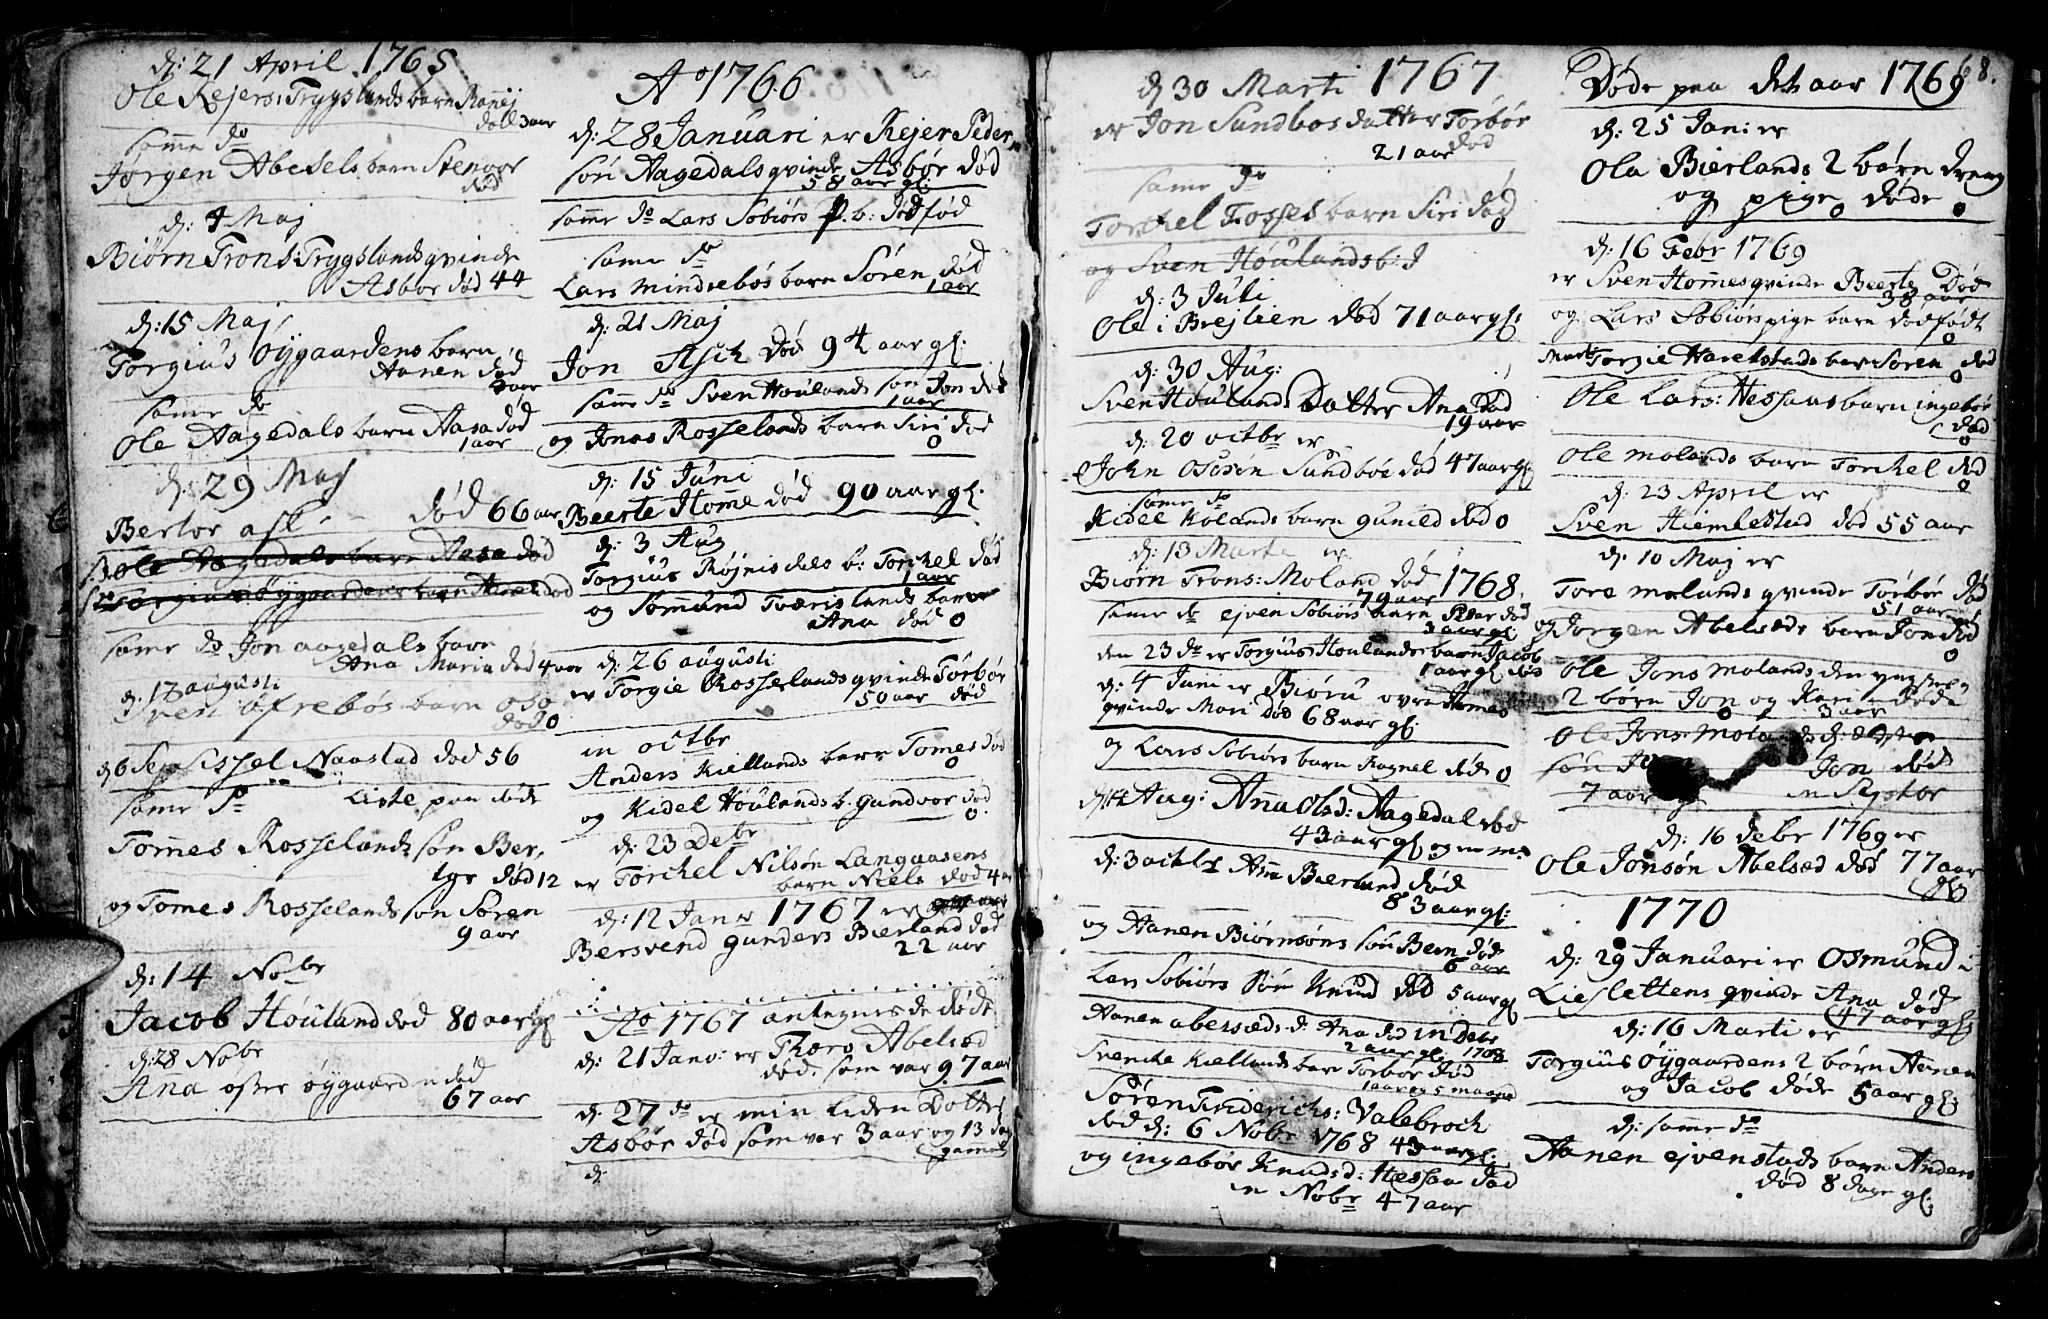 d: 21 April 1765
Ole Rejers: Trygslands barn Ranej
død 3 aar
samme do
Jørgen Abesels barn Stenvor
død
d: 4 Maj
Biørn Trons: Trygslands qvinde
Asbør død 44
d: 15 Maj
Torgius Øygaardens barn
Aanen død
3 aar
samme do
Ole Aagedals barn Aasa død
1 aar
d: 29 Maj
Bertor Ask død 66 aar
Ole Aagedals barn Aasa død
Torgius øygaardens barn Aanen død
samme do Jon aagedals barn
Ana Maria død 4 aar
d: 17 augusti
Sven øfrebøs barn oso
død 0
d 6 Sissel Naastad død 56
same do Liste paa døde
Tommes Rosselands søn Ber,
tge død 12
og Tomes Rosselands søn Søren
9 aar
d: 14 Nobr
Jacob Høuland død 80 aar gl
d: 28 Nobr
Ana øster øygaarden død
67 aar
Ao 1766
d: 28 Januari er Rejer Peder
søn Aagedals qvinde Asbør død
58 aar gl
samme do Lars Sobiørs P. b: dødfød
same do
Lars Mindsebøs barn Søren død
1 aar
d: 21 Maj
Jon Asch død 94 aar gl:
samme do Sven Høulands søn Jon død
1 aar
og Jonas Rosselands barn Siri død
0
d: 15 Juni
Beerte Homme død 90 aar gl:
d: 3 Aug
Torgius Røjnisdals b: Torchel død
1 aar
og Sommund Tveris lands barn
Ana død 0
d: 26 augusti
er Torgie Rosselands qvinde Torbør
50 aar død
in octbr
Anders Kiellands barn Tomes død
0
og Kidel Høulands b. gundvor død
0
d: 23 Debr
er Torchel Nilsøn Langaasens
barn Niels død 4 aar
d: 12 Janr 1767 er
Bersvend gunders Bierland død
22 aar
Ao 1767 antegnede døde
d: 21 Janv: er Thoro Abelsæd
død. som var 97 aar
d 27 do er min liden Dotter
Asbør død som var 3 aar og 13 dag
gamel
d:
d 30 Marti 1767
er Jon Sundbøs datter Torbør
21 aar død
same do
Torchel Fosses barn Siri død
0
og Sven Høulands b: d
d: 3 Juli
Ole i Brejlien død 71 aar gl:
d: 30 Aug:
Sven Høulands Datter Ana død
19 aar
d: 20 octbr er
John Osesøn Sundbøe død 47 aar gl:
same do
Kidel Kolands barn gunild død 0
d: 13 Marti er
Biørn Trons: Moland død 1768
79 aar
samme do ejven Sobiørs barn Peder død
3 aar gl
den 23 do er Torgius Høulands barn Jacob
1 aar gl død
d: 4 Juni er Biørn øvre Homes
qvinde Mari død 68 aar gl:
og Lars Sobiørs barn Ragnel død 0
d 14 Aug: Anna Olsd: Aagedal død
43 aar gl
d: 3 octbr Anne Bierland død
83 aar gl:
og Aanen Biørnsøns søn Bern død
6 aar
Lars Sobiørs Søn Knud død 5 aar gl
Aanen abelsæds d. Ana død in Debr
2 aar gl. 1768
Svencke Kiellands barn Torbor død
1 aar og 5 maaned
Søren Friderichs: Valebroch
død d: 6 Nobr 1768 43 aar gl:
og ingebør Knudsd: Hessaa død
in Nobr 47 aar
68.
Døde paa det aar 1769
d: 25 Jani er
Ola Bierlands 2 børn dreng
og pige døde
0 0
d: 16 Febr 1769
er Sven Homes qvinde Beerte Død
38 aar
og Lars Sobiørs pige barn dødfødt
0
Torgie Harelstads barn Søren død
0
Ole Lars: Hessaas barn ingebør
død
0
Ole Molands barn Torchel død
0
d: 23 April er
Sven Hiemlestad død 55 aar
d: 10 Maj er
Tore molands qvinde Torbør død
51 aar
og Jørgen Abelsæds barn Jon død
0
Ole Jons Molands den yngstes
2 børn Jon og Kari døde
0 3 aar
Ole Jons: Molands
søn Jon død
7 aar gl in Septbr
d: 16 Debr 1769 er
Ole Jonsøn Abelsæd død 77 aar
gl
1770
d: 29 Januari er Osmund i
Lieslettens qvinde Ana død
47 aar gl
d: 16 Marti er
Torgius Øygaardens 2 børn Aanen
og Jacob døde 5 aar gl:
d: samme do
Aanen ejvenstads barn Anders
død 8 dage gl.